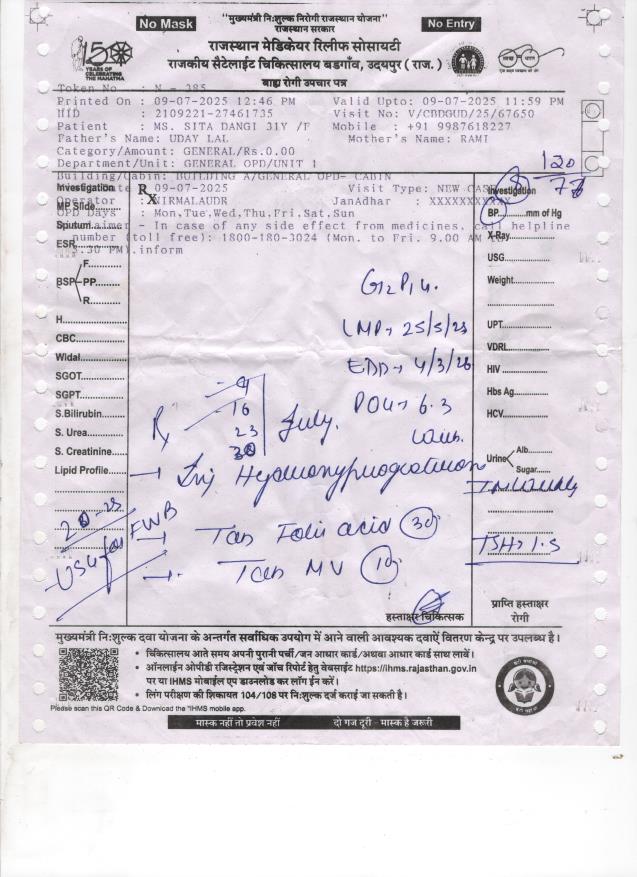 No Mask
"मुख्यमंत्री निःशुल्क निरोगी राजस्थान योजना"
राजस्थान सरकार
No Entry
राजस्थान मेडिकेयर रिलीफ सोसायटी
राजकीय सैटेलाईट चिकित्सालय बडगाँव, उदयपुर ( राज. )
बाह्य रोगी उपचार पत्र
150
YEARS OF
CELEBRATING
THE MAHATMA
Token No : N - 385
Printed On : 09-07-2025 12:46 PM Valid Upto: 09-07-2025 11:59 PM
HID : 2109221-27461735 Visit No: V/CBDGUD/25/67650
Patient : MS. SITA DANGI 31Y /F Mobile : +91 9987618227
Father's Name: UDAY LAL Mother's Name: RAMI
Category/Amount: GENERAL/Rs.0.00
Department/Unit: GENERAL OPD/UNIT 1
Building/Cabin: BUILDING A/GENERAL OPD- CABIN
09-07-2025 Visit Type: NEW CASE
NIRMALAUDR JanAdhar : XXXXXXXXXX
OPD Days : Mon,Tue,Wed,Thu,Fri,Sat,Sun
- In case of any side effect from medicines, call helpline
number (toll free): 1800-180-3024 (Mon. to Fri. 9.00 AM
PM).inform
Investigation
MP Slide
Sputum
ESR
F
BSP PP
R
H
CBC
Widal
SGOT
SGPT
S.Bilirubin
S. Urea
S. Creatinine
Lipid Profile
Rx
120
Investigation
BP mm of Hg
X-Ray
USG
Weight
UPT
VDRL
HIV
Hbs Ag
HCV
Urine Alb.
Sugar
LMP → 25/5/25
EDD → 4/3/26
POG → 6.3
9
16
23
30
July.
Rx
→ Inj
→ Tab Folic acid 30
→ Tab MV 10
USG for FWB
TSH → 1.5
हस्ताक्षर चिकित्सक
प्राप्ति हस्ताक्षर
रोगी
मुख्यमंत्री निःशुल्क दवा योजना के अन्तर्गत सर्वाधिक उपयोग में आने वाली आवश्यक दवाऐं वितरण केन्द्र पर उपलब्ध है।
• चिकित्सालय आते समय अपनी पुरानी पर्ची/जन आधार कार्ड/अथवा आधार कार्ड साथ लावें।
• ऑनलाईन ओपीडी रजिस्ट्रेशन एवं जॉच रिपोर्ट हेतु वेबसाईट https://ihms.rajasthan.gov.in
पर या IHMS मोबाईल एप डाउनलोड कर लॉग ईन करें।
• लिंग परीक्षण की शिकायत 104/108 पर निःशुल्क दर्ज कराई जा सकती है।
Please scan this QR Code & Download the "IHMS mobile app.
मास्क नहीं तो प्रवेश नहीं दो गज दूरी - मास्क है जरूरी